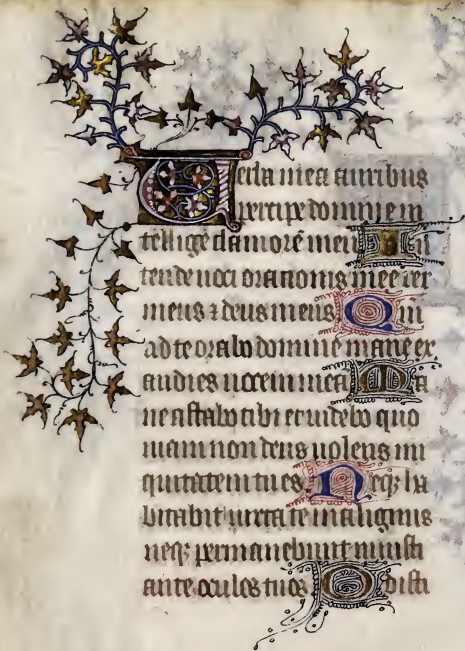 Verba mea auribus
percipe domine in
tellige clamorē meū In
tende uoci orationis mee rex
meus ⁊ deus meus Qm̄
ad te orabo domine mane ex
audies uocem meā Ma
ne astabo tibi et uidebo quo
niam non deus uolens ini
quitatem tu es Neqꝫ ha
bitabit iuxta te malignus
neqꝫ permanebunt iniusti
ante oculos tuos Odisti